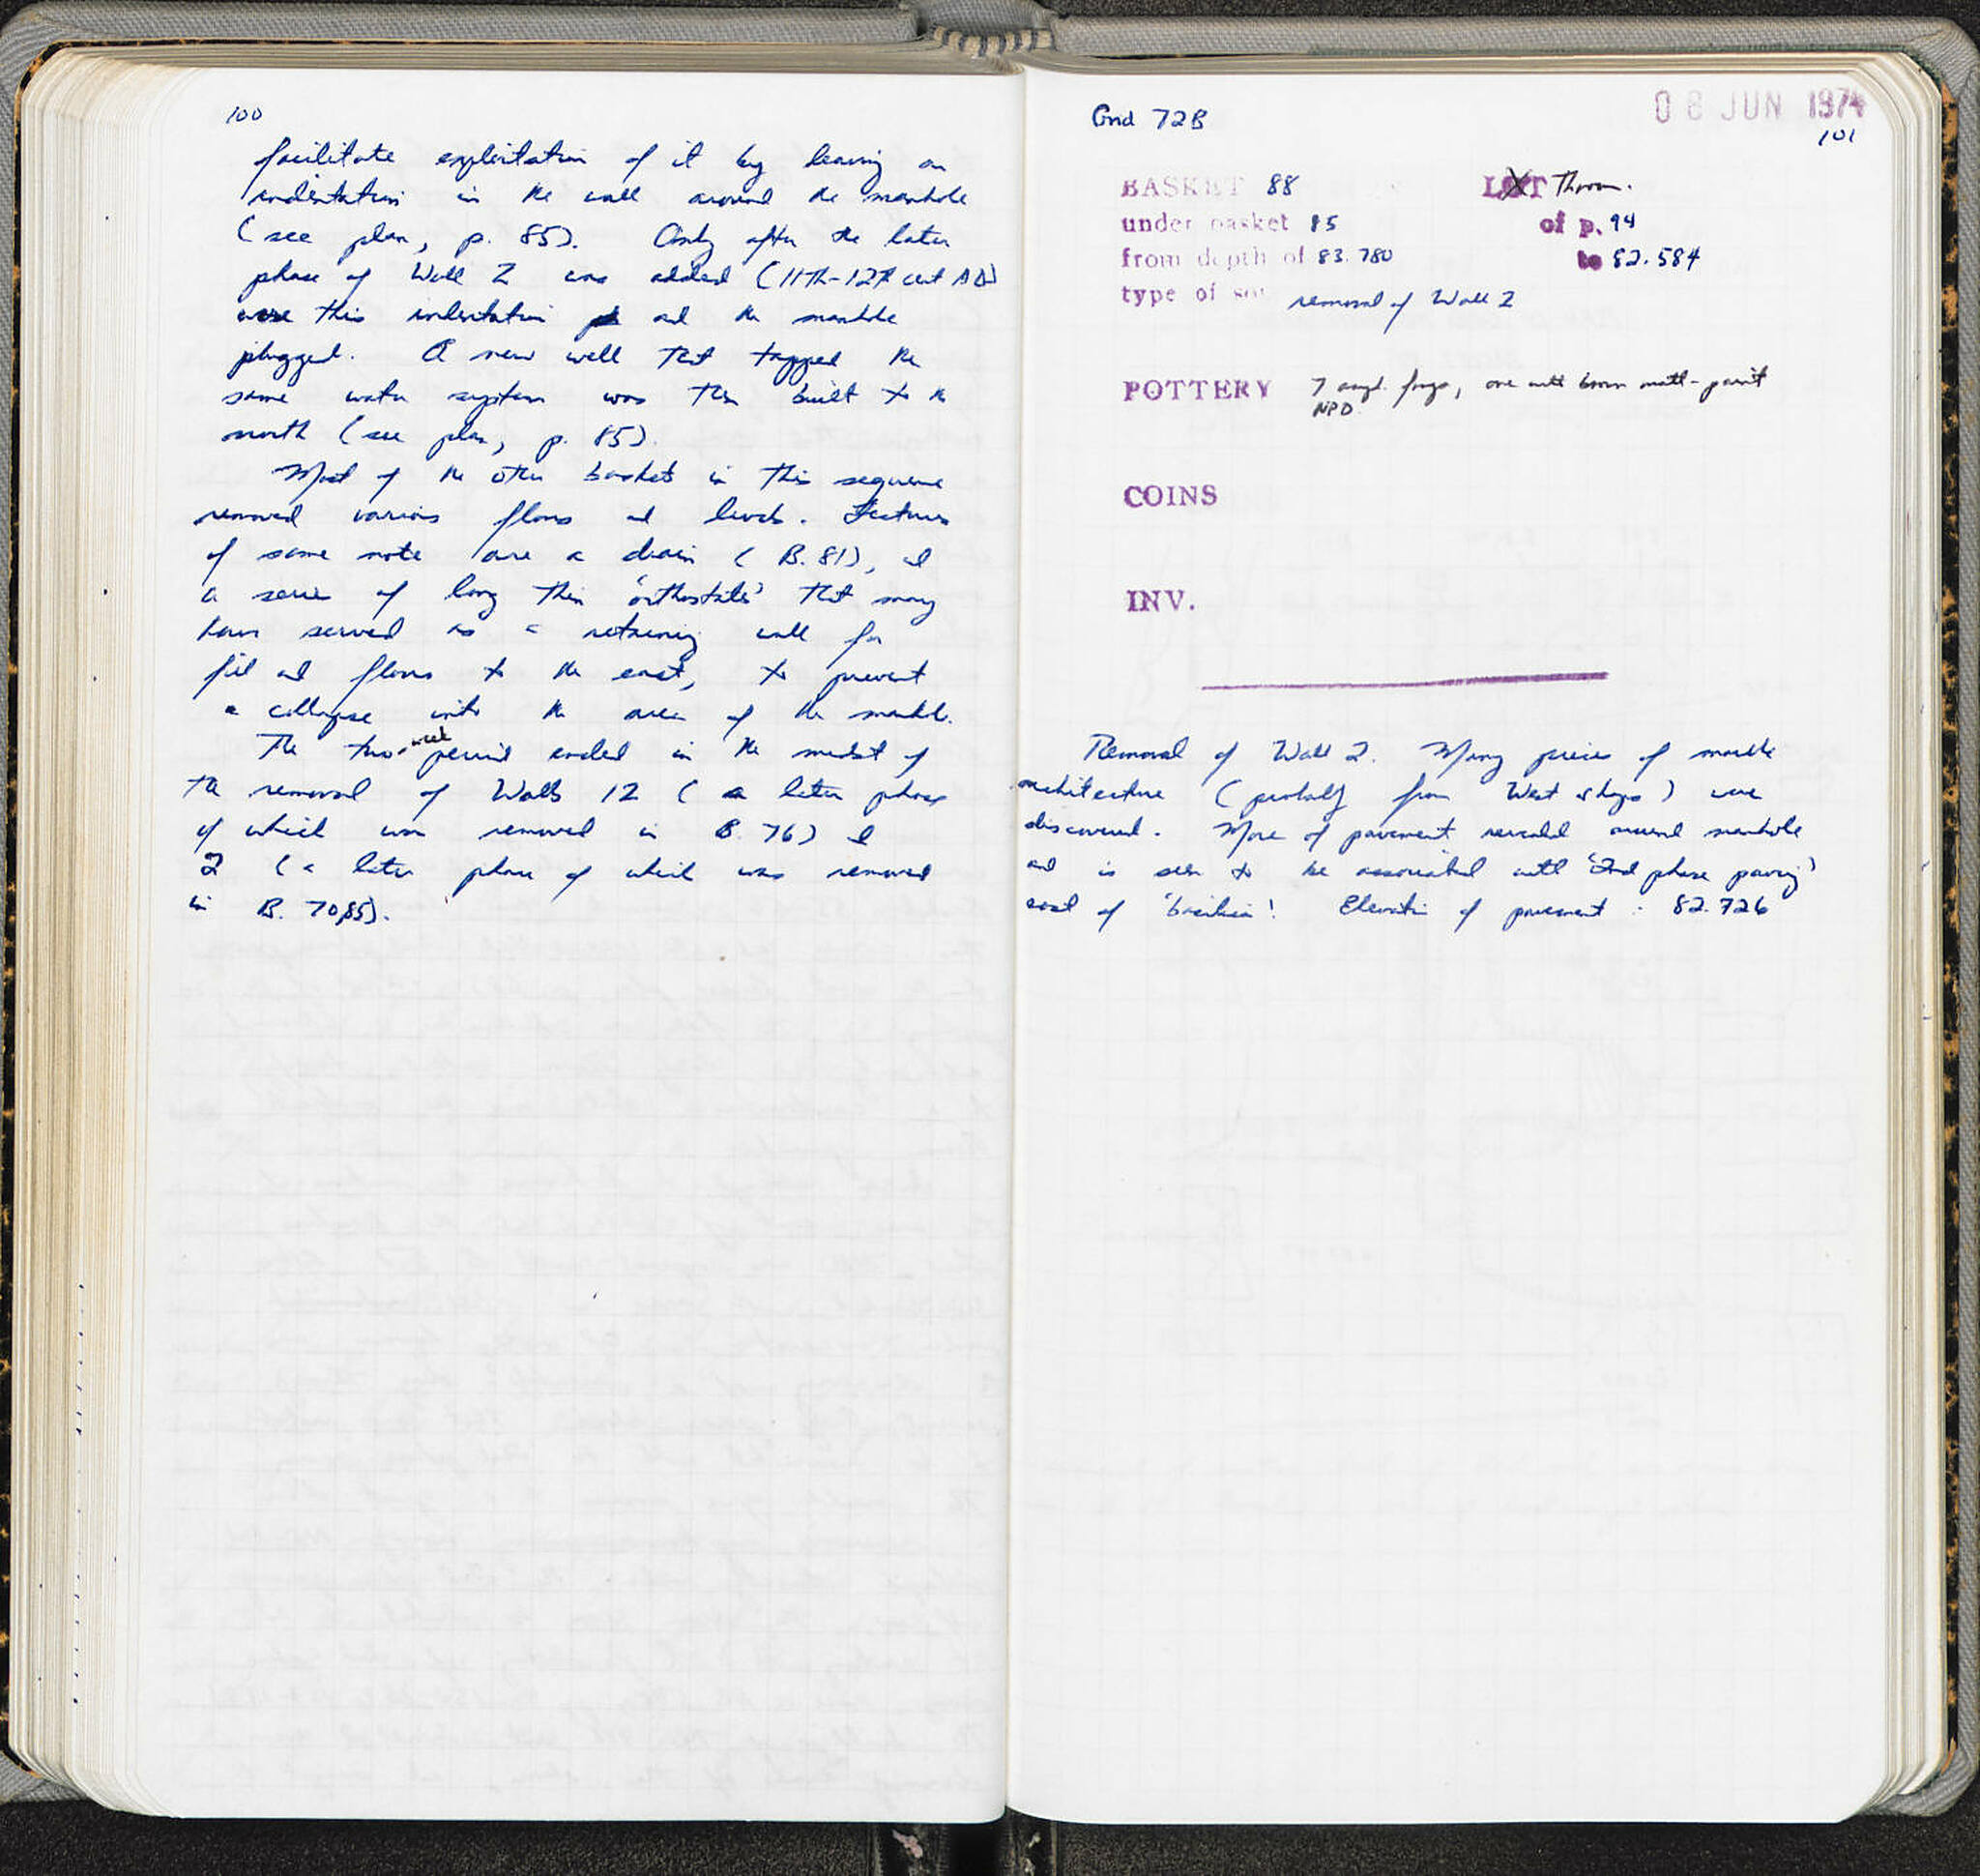 100
facilitate exploitation of it by leaving an
indentation in the wall around the manhole
(see plan, p. 85). Only after the later
phase of Wall 2 was added (11th-12th cent AD)
were this indentation and the manhole
plugged. A new well that tapped the
same water system was then built to the
north (see plan, p. 85).
Most of the other baskets in this sequence
removed various floors and levels. Features
of some note are a drain (B. 81), and
a series of long thin 'orthostates' that may
have served as a retaining wall for
fill and floors to the east, to prevent
a collapse into the area of the manhole.
The two-week period ended in the midst of
the removal of Walls 12 (a later phase
of which was removed in B. 76) and
2 (a later phase of which was removed
in B. 70,85).
Grid 72B
08 JUN 1974
101
BASKET 88 LOT Thrown.
under basket 85 of p. 94
from depth of 83.780 to 82.584
type of soil removal of Wall 2
POTTERY 7 frags, one with brown matt-paint
NPD.
COINS
INV.
Removal of Wall 2. Many pieces of marble
architecture (probably from West shops) were
discovered. More of pavement revealed around manhole
and is seen to be associated with '2nd phase paving'
east of 'basilica'. Elevation of pavement : 82.726